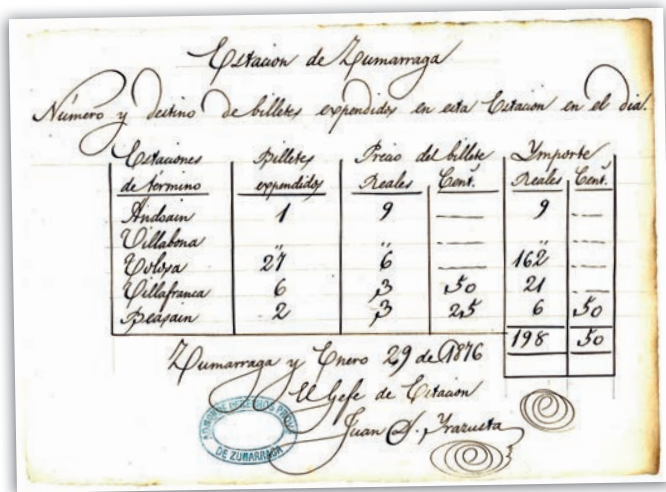 Estacion de Zumarraga
Número y destino de billetes expendidos en esta Estacion en el dia.
Estaciones de término Billetes expendidos Precio del billete Ymporte
Reales Cent.s Reales Cent.s
Andoain 1 9 — 9 —
Villabona " " — " —
Tolosa 27 6 — 162 —
Villafranca 6 3 50 21 —
Beasain 2 3 25 6 50
198 50
Zumarraga y Enero 29 de 1876
El Gefe de Estacion
Juan S. Yrazusta
DE ZUMARRAGA